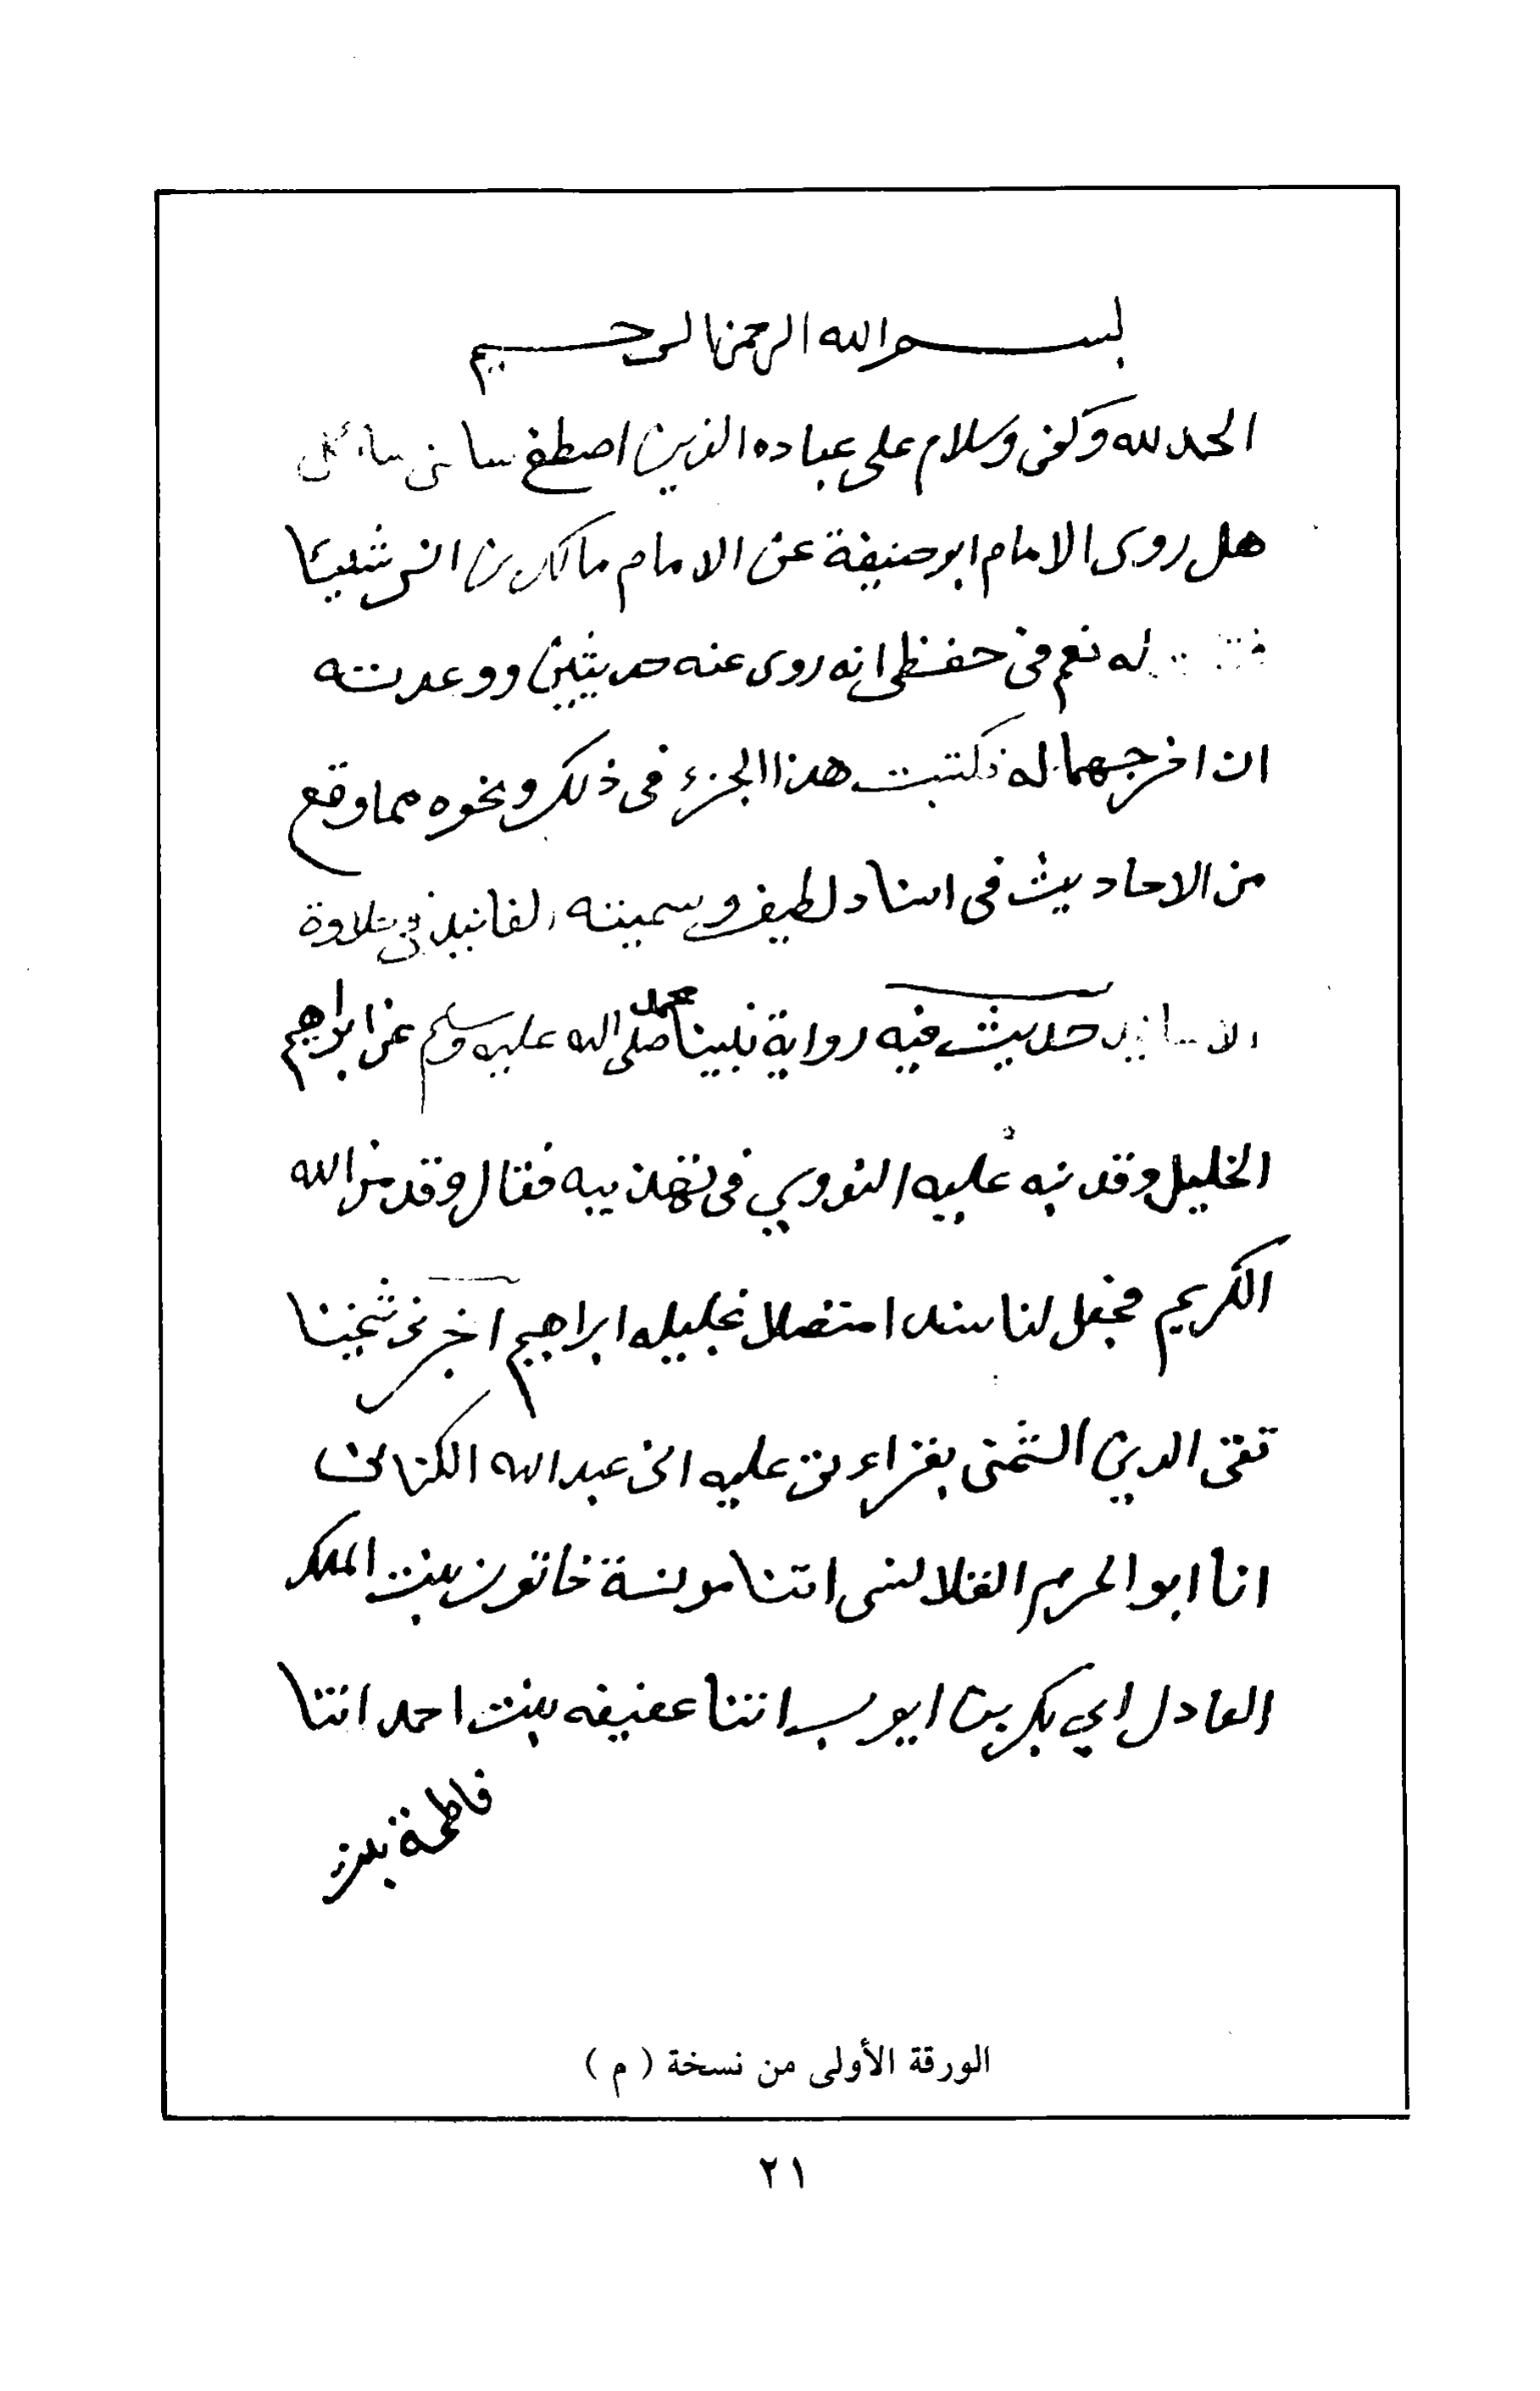 بسم الله الرحمن الرحيم
الحمد لله وكفى وسلام على عباده الذين اصطفى سالنى سائل
هل روى الامام ابو حنيفة عن الامام مالك بن انس شيئا
فقلت له نعم فى حفظى انه روى عنه حديثين ووعدته
ان اخرجهما له فكتبت هذا الجزء فى ذلك ونحوه مما وقع
من الاحاديث فى اسناد لطيف وسميته الفانيد فى حلاوة
الاسانيد حديث فيه رواية نبينا محمد صلى الله عليه وسلم عن ابراهيم
الخليل وقد نبه عليه النووي فى تهذيبه فقال وقد من الله
الكريم فجعل لنا سندا متصلا بخليله ابراهيم اخبرنى شيخنا
تقى الدين الشمنى بقراءتى عليه انا عبد الله الكنانى
انا ابو الحرم القلانسى اتنا مونسة خاتون بنت الملك
العادل ابي بكر بن ايوب اتنا عفيفه بنت احمد اتنا
فاطمة بنت
الورقة الأولى من نسخة ( م )
٢١